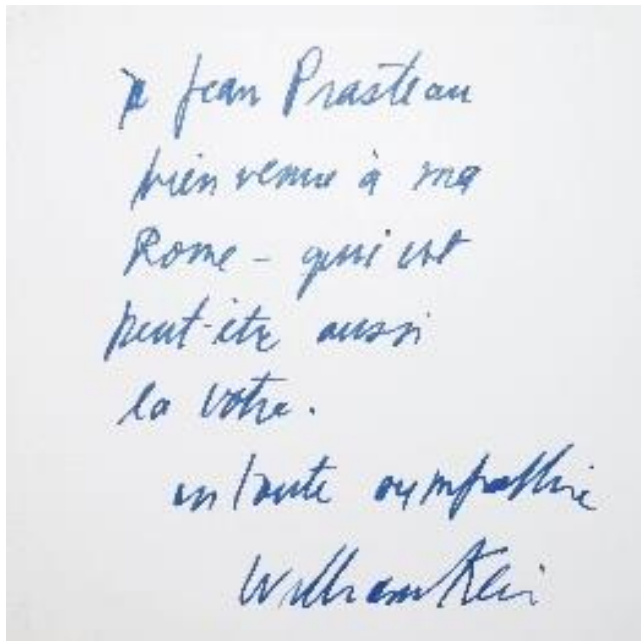 à Jean Prasteau
bienvenue à ma
Rome - qui est
peut-être aussi
la vôtre.
en toute sympathie
William Klein